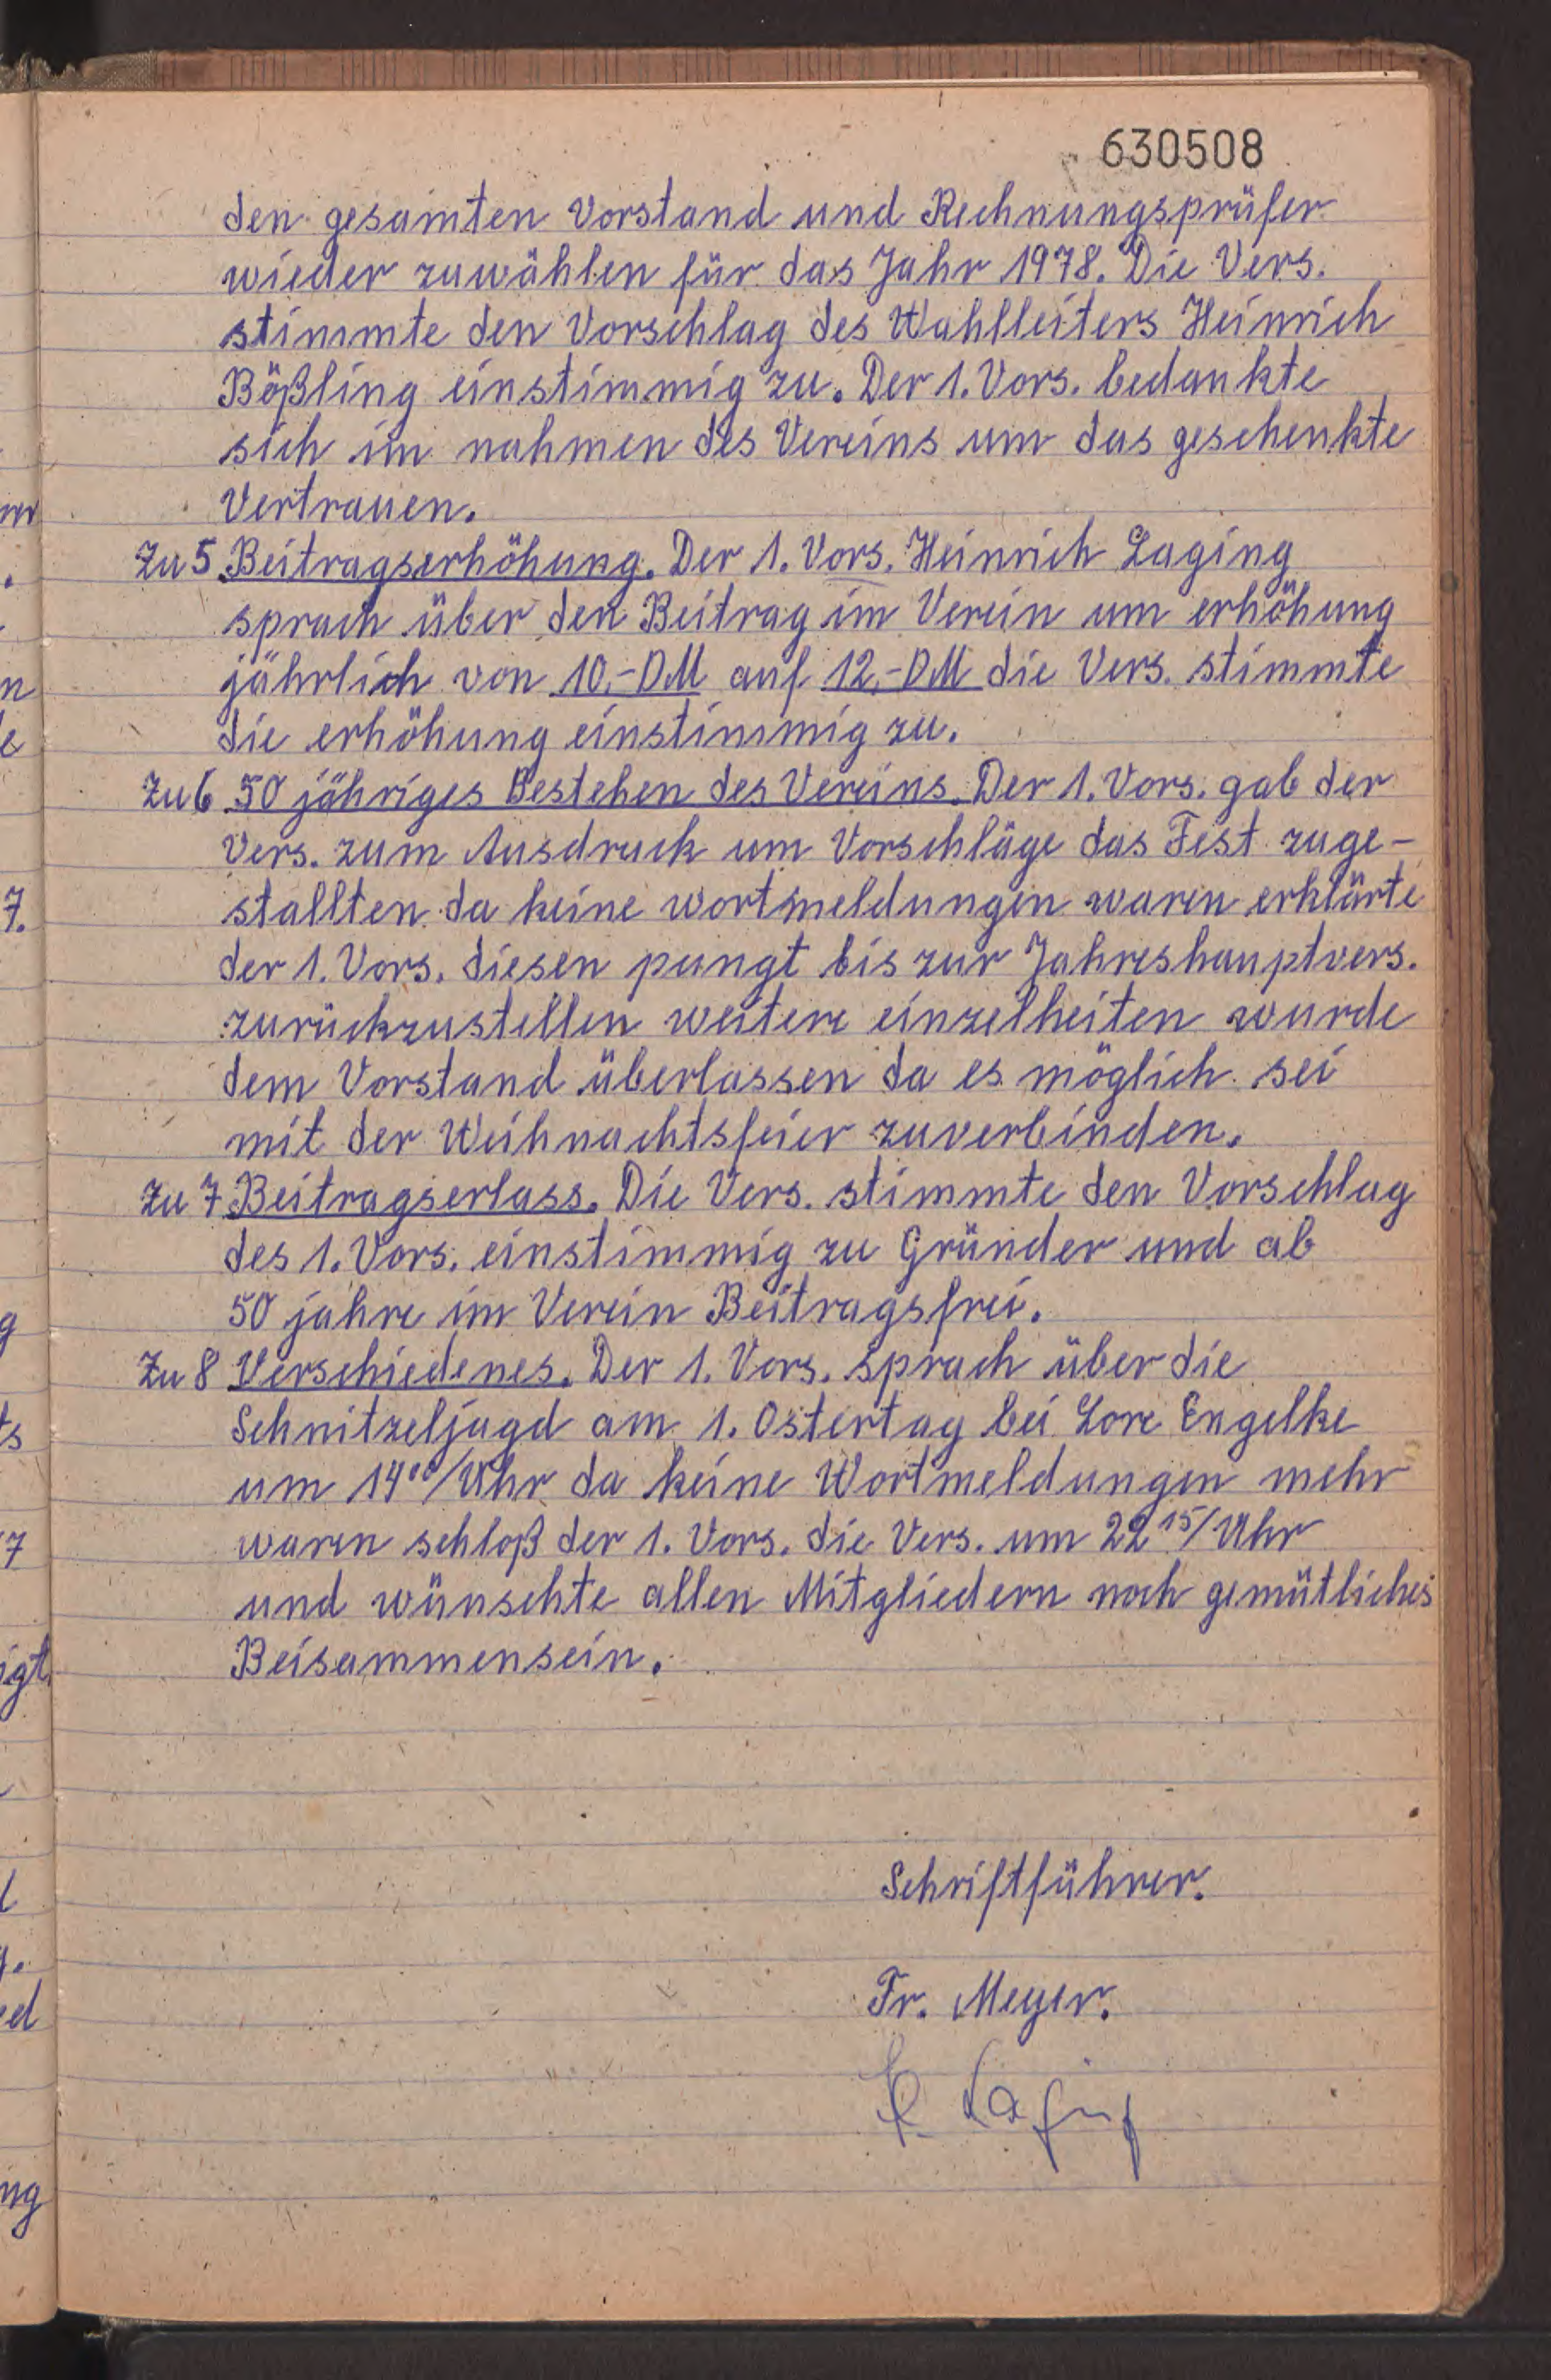 630508
den gesamten Vorstand und Rechnungsprüfer
wieder zuwählen für das Jahr 1978. Die Vers.
stimmte den Vorschlag des Wahlleiters Heinrich
Bößling einstimmig zu. Der 1. Vors. bedankte
sich im nahmen des Vereins um das geschenkte
Vertrauen.
Zu 5 Beitragserhöhung. Der 1. Vors. Heinrich Laging
sprach über den Beitrag im Verein um erhöhung
jährlich von 10,-DM auf 12,-DM die Vers. stimmte
die erhöhung einstimmig zu.
Zu 6 50 jähriges Bestehen des Vereins. Der 1. Vors. gab der
Vers. zum Ausdruck um Vorschläge das Fest zuge-
stallten da keine wortmeldungen waren erklärte
der 1. Vors. diesen pungt bis zur Jahreshauptvers.
zurückzustellen weitere einzelheiten wurde
dem Vorstand überlassen da es möglich sei
mit der Weihnachtsfeier zuverbinden.
Zu 7 Beitragserlass. Die Vers. stimmte den Vorschlag
des 1. Vors. einstimmig zu Gründer und ab
50 jahre im Verein Beitragsfrei.
Zu 8 Verschiedenes. Der 1. Vors. sprach über die
Schnitzeljagd am 1. Ostertag bei Lore Engelke
um 14⁰⁰/Uhr da keine Wortmeldungen mehr
waren schloß der 1. Vors. die Vers. um 22¹⁵/Uhr
und wünschte allen Mitgliedern noch gemütliches
Beisammensein.
Schriftführer.
Fr. Meyer.
H. Laging